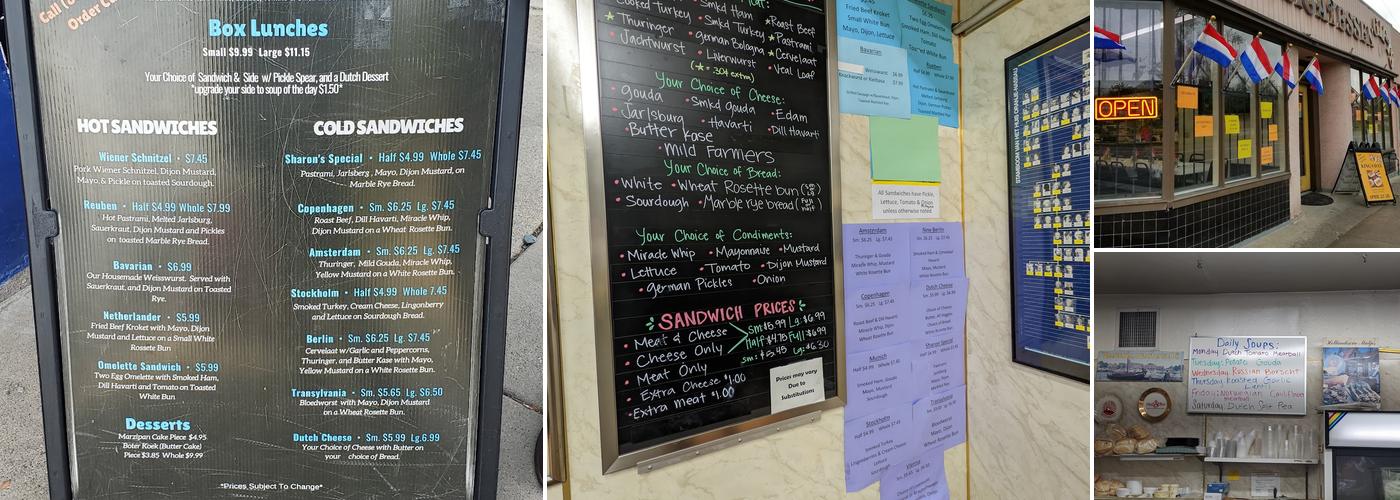 Call
Order
Box Lunches
Small $9.99 Large $11.15
Your Choice of Sandwich & Side w/ Pickle Spear, and a Dutch Dessert
*upgrade your side to soup of the day $1.50*
HOT SANDWICHES
Wiener Schnitzel • $7.45
Pork Wiener Schnitzel, Dijon Mustard,
Mayo, & Pickle on toasted Sourdough.
Reuben • Half $4.99 Whole $7.99
Hot Pastrami, Melted Jarlsburg,
Sauerkraut, Dijon Mustard and Pickles
on toasted Marble Rye Bread.
Bavarian • $6.99
Our Housemade Weisswurst. Served with
Sauerkraut, and Dijon Mustard on Toasted
Rye.
Netherlander • $5.99
Fried Beef Kroket with Mayo, Dijon
Mustard and Lettuce on a Small White
Rossette Bun
Omelette Sandwich • $5.99
Two Egg Omelette with Smoked Ham,
Dill Havarti and Tomato on Toasted
White Bun
Desserts
Marzipan Cake Piece $4.95
Boter Koek (Butter Cake)
Piece $3.85 Whole $9.99
COLD SANDWICHES
Sharon's Special • Half $4.99 Whole $7.45
Pastrami, Jarlsberg, Mayo, Dijon Mustard, on
Marble Rye Bread.
Copenhagen • Sm. $6.25 Lg. $7.45
Roast Beef, Dill Havarti, Miracle Whip,
Dijon Mustard on a White Rosette Bun.
Amsterdam • Sm. $6.25 Lg. $7.45
Thuringer, Mild Gouda, Miracle Whip,
Yellow Mustard on a White Rosette Bun.
Stockholm • Half $4.99 Whole 7.45
Smoked Turkey, Cream Cheese, Lingonberry
and Lettuce on Sourdough Bread.
Berlin • Sm. $6.25 Lg. $7.45
Cervelaat w/Garlic and Peppercorns,
Thuringer, and Butter Kase with Mayo,
Yellow Mustard on a White Rosette Bun.
Transylvania • Sm. $5.65 Lg. $6.50
Bloedworst with Mayo, Dijon Mustard
on a White Rosette Bun.
Dutch Cheese • Sm. $5.99 Lg.6.99
Your Choice of Cheese with Butter on
your choice of Bread.
*Prices Subject To Change*
Cooked Turkey • Smkd Ham ★Roast Beef
★ Thuringer • Smkd Turkey ★Pastrami
• Jachtwurst • German Bologna ★Cervelaat
• Liverwurst • Veal Loaf
(★ = .30¢ extra)
Your Choice of Cheese:
• Gouda • Smkd Gouda • Edam
• Jarlsburg • Havarti • Dill Havarti
• Butter Kase
• Mild Farmers
Your Choice of Bread:
• White • Wheat Rosette bun
• Sourdough • Marble rye bread
Your Choice of Condiments:
• Miracle Whip • Mayonnaise • Mustard
• Lettuce • Tomato • Dijon Mustard
• German Pickles • Onion
SANDWICH PRICES
• Meat & Cheese Sm:$5.99 Lg:$6.99
• Cheese Only Half:$4.75 Full:$6.99
• Meat Only Sm: $5.45 Lg: $6.30
• Extra Cheese $1.00
• Extra meat $1.00
Prices may vary
Due to
Substitutions
Fried Beef Kroket
Small White Bun
Mayo, Dijon, Lettuce
Bavarian
Weisswurst $6.99
Two Egg Omelette
Smoked Ham, Dill Havarti
Tomato
Toasted White Bun
Reuben
All Sandwiches have Pickle,
Lettuce, Tomato & Onion
unless otherwise noted
Amsterdam
Sm. $6.25 Lg. $7.45
Thuringer & Gouda
Miracle Whip, Mustard
White Rosette Bun
New Berlin
Copenhagen
Roast Beef & Dill Havarti
Miracle Whip, Dijon
White Rosette Bun
Dutch Cheese
Munich
Smoked Ham, Gouda
Mayo, Mustard
Sourdough
Sharon Special
Stockholm
Smoked Turkey
Transylvania
Bloodwurst
Mayo, Dijon
White Rosette Bun
Vienna
STAMBOOM VAN HET HUIS ORANJE-NASSAU
OPEN
Daily Soups:
Monday Dutch Tomato Meatball
Tuesday: Potato Gouda
Wednesday Russian Borscht
Thursday Roasted Garlic
Lentil
Friday: Norwegian Cauliflower
meatball
Saturday Dutch Split Pea